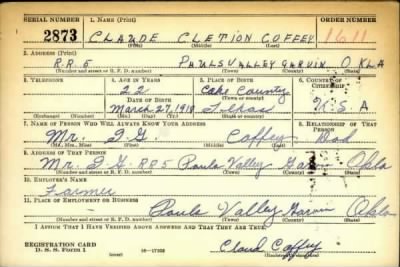 SERIAL NUMBER 1. NAME (Print) ORDER NUMBER
2873 CLAUDE CLETION COFFEY 1611
(First) (Middle) (Last)
2. ADDRESS (Print)
R.R.5 PAULSVALLEY GARVIN OKLA
(Number and street or R. F. D. number) (Town) (County) (State)
3. TELEPHONE 4. AGE IN YEARS 5. PLACE OF BIRTH 6. COUNTRY OF CITIZENSHIP
22 County
DATE OF BIRTH (Town or county)
March 27, 1918 U.S.A
(Exchange) (Number) (Mo.) (Day) (Yr.) (State or country)
7. NAME OF PERSON WHO WILL ALWAYS KNOW YOUR ADDRESS 8. RELATIONSHIP OF THAT PERSON
Mr. Coffey Dad
(Mr., Mrs., Miss) (First) (Middle) (Last)
9. ADDRESS OF THAT PERSON
Mr. R05 Paula Valley Okla
(Number and street or R. F. D. number) (Town) (County) (State)
10. EMPLOYER'S NAME
Farmer
11. PLACE OF EMPLOYMENT OR BUSINESS
Paula Valley Garvin Okla
(Number and street or R. F. D. number) (Town) (County) (State)
I AFFIRM THAT I HAVE VERIFIED ABOVE ANSWERS AND THAT THEY ARE TRUE.
REGISTRATION CARD
D. S. S. Form 1 Claud Coffey